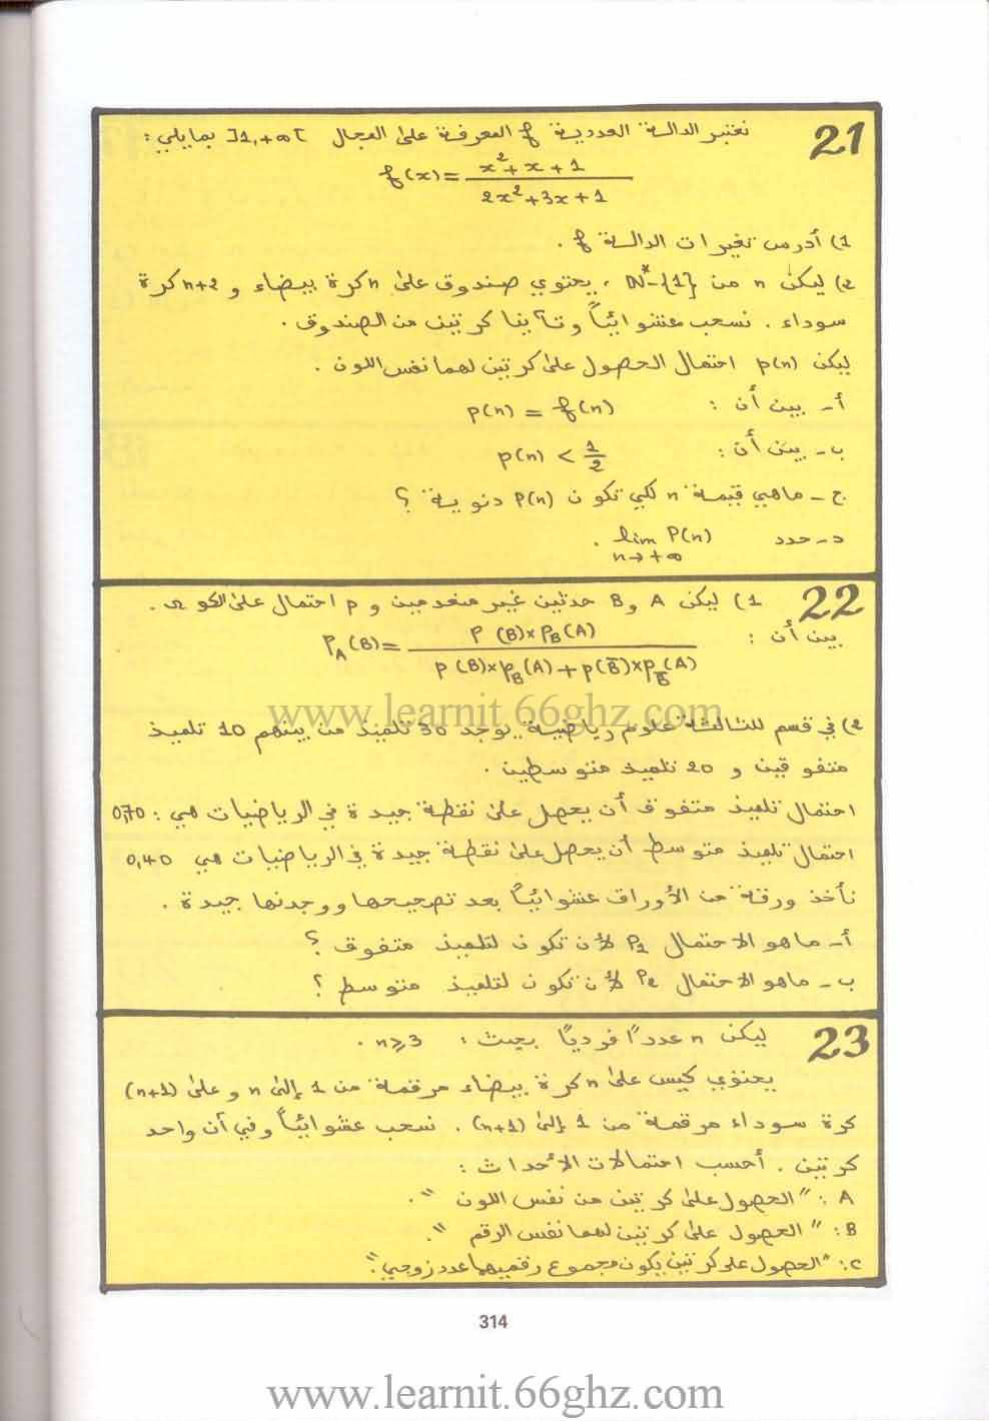 21 نعتبر الدالة العددية f المعرفة على المجال ]1,+∞[ بمايلي :
f(x) = (x²+x+1)/(2x²+3x+1)
1) أدرس تغيرات الدالة f .
2) ليكن n من N*-{1} ، يحتوي صندوق على n كرة بيضاء و n+2 كرة
سوداء . نسحب عشوائياً وتآنيا كرتين من الصندوق .
ليكن p(n) احتمال الحصول على كرتين لهما نفس اللون .
أ- بين أن : p(n) = f(n)
ب- بين أن : p(n) < 1/2
ج- ماهي قيمة n لكي تكون p(n) دنوية ؟
د- حدد lim P(n) n→+∞ .
22 1) ليكن A و B حدثين غير منعدمين و p احتمال على الكون Ω .
بين أن : P_A(B) = (P(B)×P_B(A))/(P(B)×p_B(A)+p(B̄)×p_B̄(A))
www.learnit.66ghz.com
2) في قسم للثالثة علوم رياضية يوجد 30 تلميذ من بينهم 10 تلميذ
متفوقين و 20 تلميذ متوسطين .
احتمال تلميذ متفوق أن يحصل على نقطة جيدة في الرياضيات هي : 0,70
احتمال تلميذ متوسط أن يحصل على نقطة جيدة في الرياضيات هي 0,40
نأخذ ورقة من الأوراق عشوائيًا بعد تصحيحها ووجدنها جيدة .
أ- ماهو الاحتمال P₁ لأن تكون لتلميذ متفوق ؟
ب- ماهو الاحتمال P₂ لأن تكون لتلميذ متوسط ؟
23 ليكن n عددًا فرديًا بحيث : n≥3 .
يحتوي كيس على n كرة بيضاء مرقمة من 1 إلى n و على (n+1)
كرة سوداء مرقمة من 1 إلى (n+1) . نسحب عشوائياً وفي آن واحد
كرتين . أحسب احتمالات الأحداث :
A : "الحصول على كرتين من نفس اللون" .
B : "الحصول على كرتين لهما نفس الرقم" .
C : "الحصول على كرتين يكون مجموع رقميهما عدد زوجي" .
314
www.learnit.66ghz.com